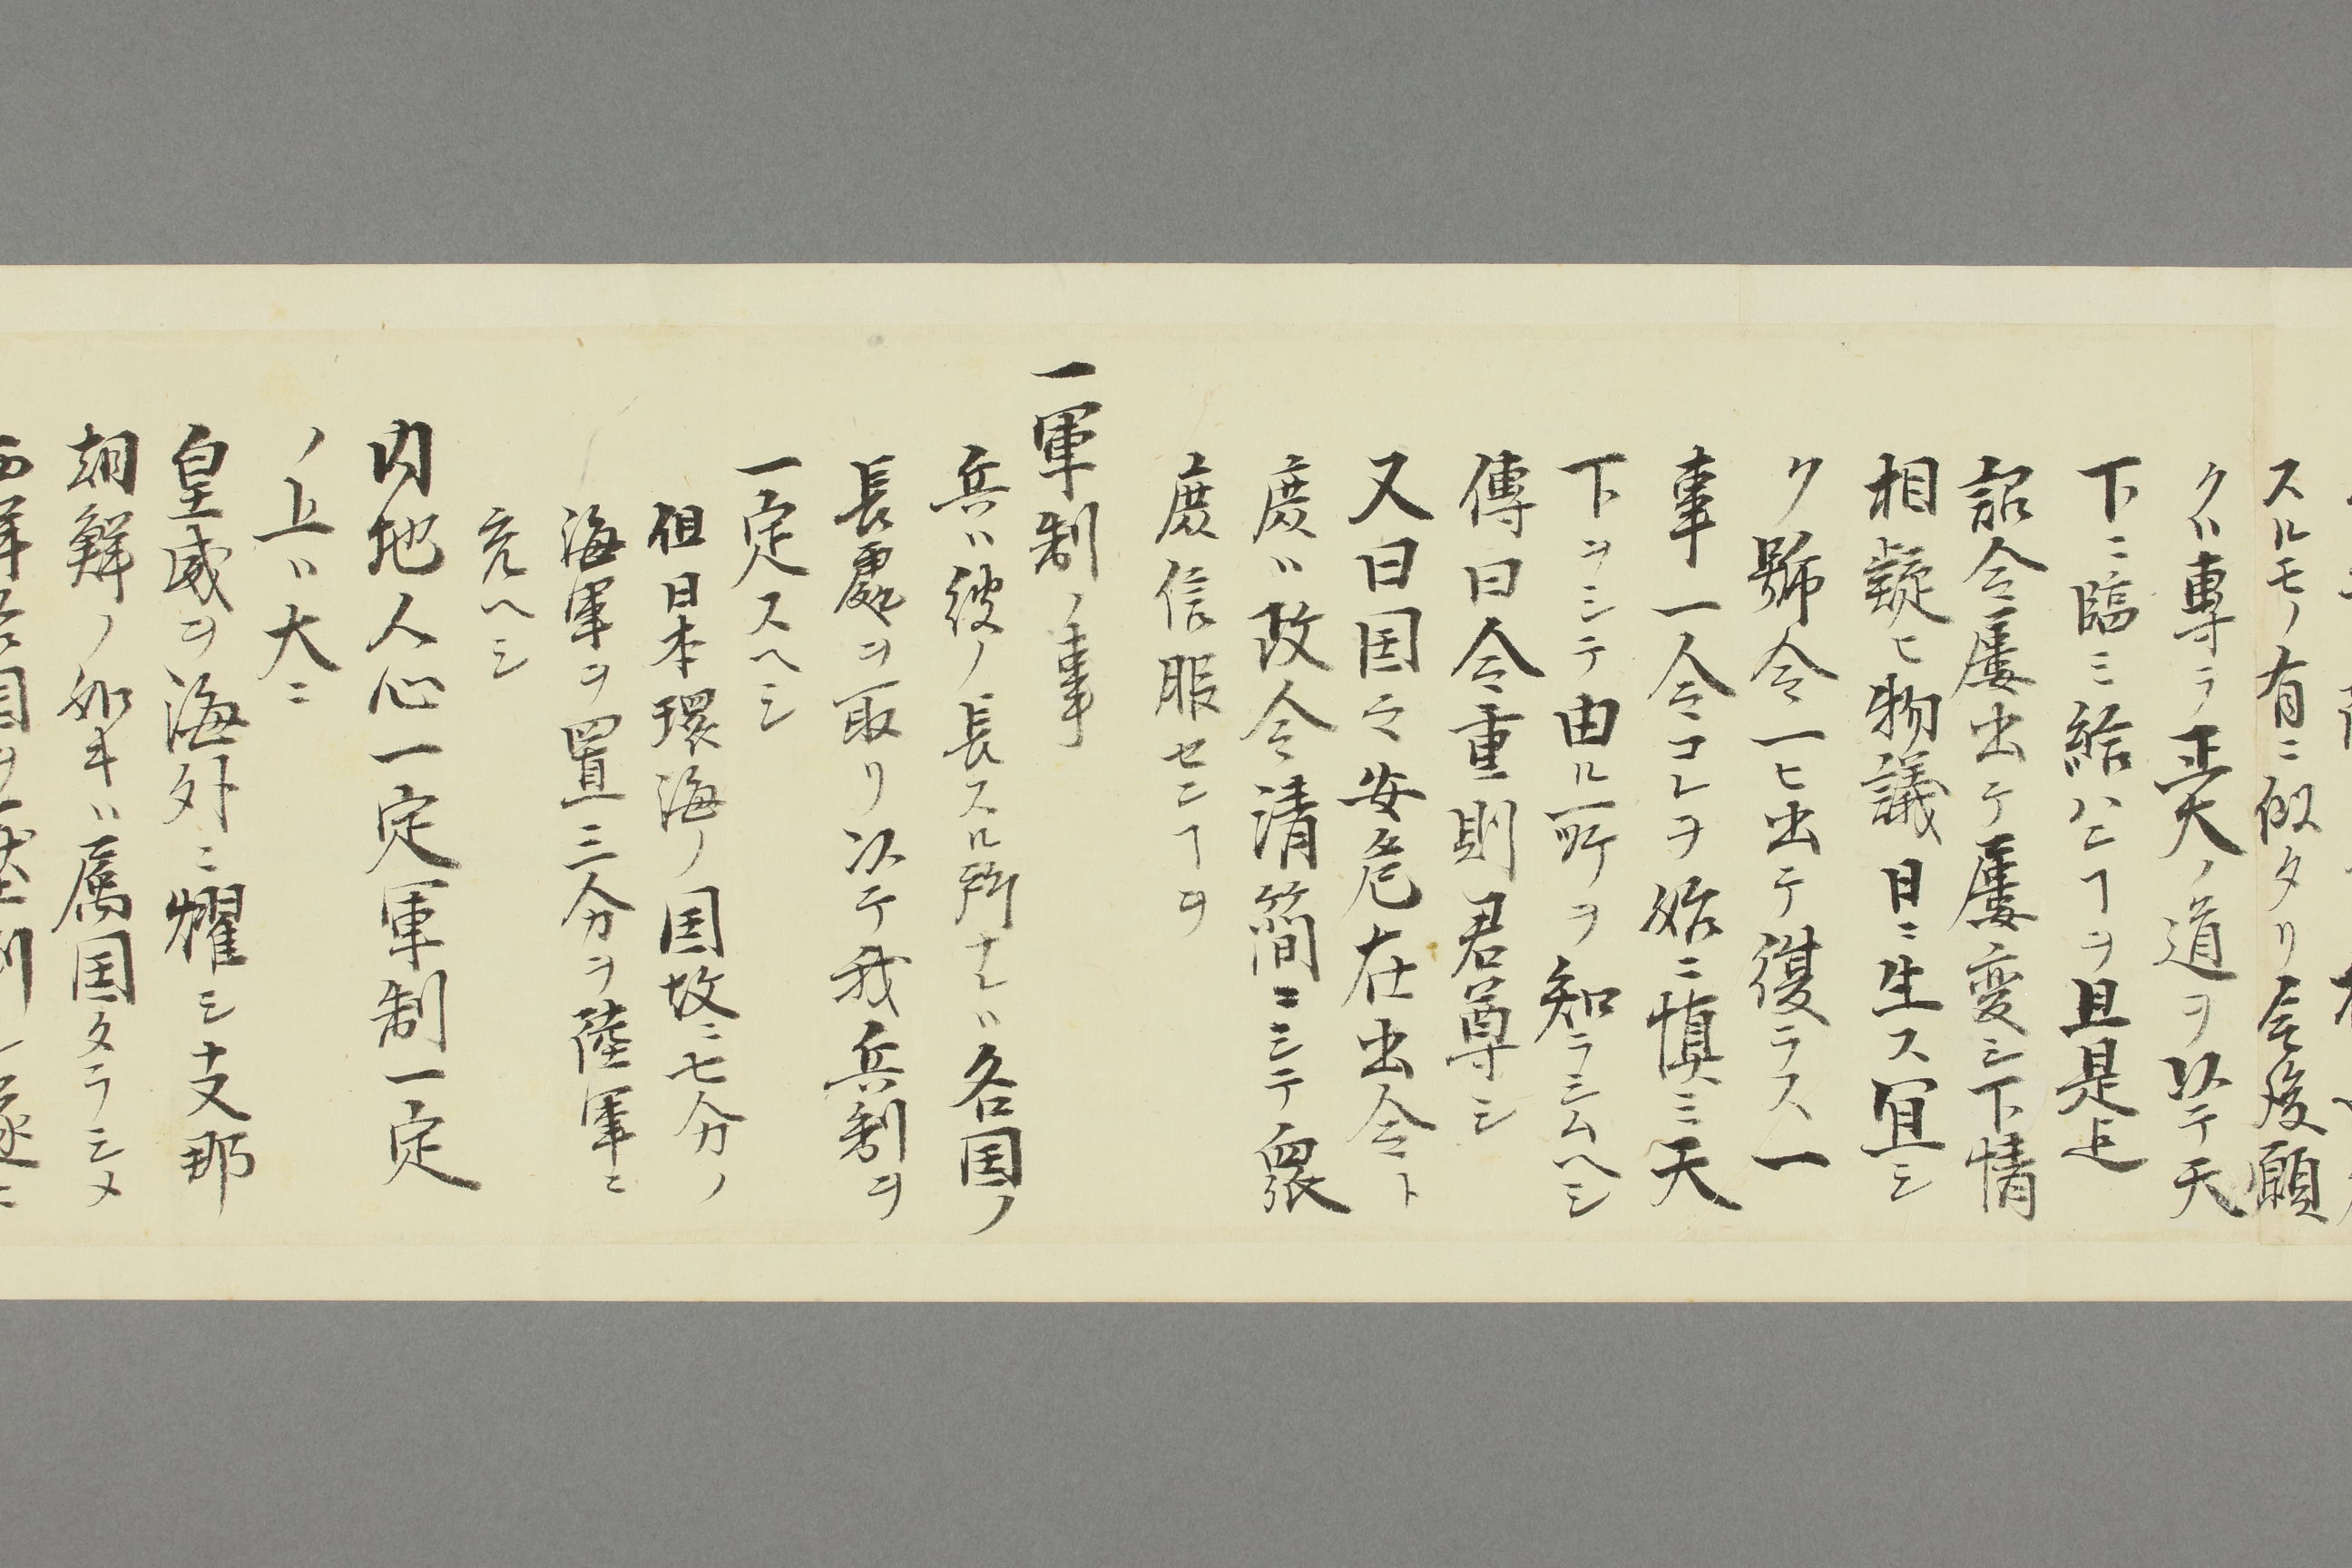 スルモノ有ニ似タリ今後願
クハ専ラ正大ノ道ヲ以テ天
下ニ臨ミ給ハンヿヲ且是上
詔令屢出テ屢変シ下情
相疑ヒ物議日ニ生ス冝シ
ク號令一ヒ出テ復ラス一
事一令コレヲ始ニ慎ミ天
下ヲシテ由ル所ヲ知ラシムヘシ
傳曰令重則君尊シ
又曰国之安危在出令ト
庻ハ政令清簡ニシテ衆
庻信服センヿヲ
一軍制ノ事
兵ハ彼ノ長スル所ナレハ各国ノ
長處ヲ取リ以テ我兵制ヲ
一定スヘシ
但日本環海ノ国故ニ七分ノ
海軍ヲ置三分ヲ陸軍ニ
充ヘシ
内地人心一定軍制一定
ノ上ハ大ニ
皇威ヲ海外ニ耀シ支那
朝鮮ノ如キハ属国タラシメ